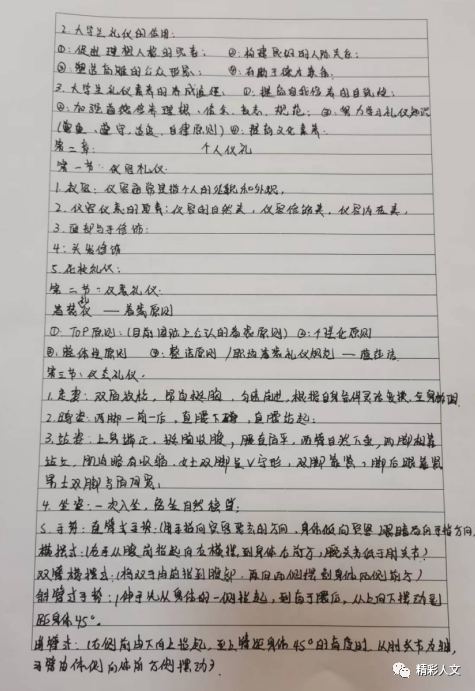 2. 大学生礼仪的作用:
①: 促进理想人格的完善;  ②: 构建良好的人际关系;
③: 塑造高雅的公众形象;  ④: 有助于强大集体.
3. 大学生礼仪素养的养成途径:  ①: 提高自我修养的自觉性;
②: 加强道德修养理想、信念、规范;  ③: 努力学习礼仪知识
(尊重、遵守、适度、自律原则) ④: 提高文化素养.
第二章:  个人仪礼
第一节: 仪容礼仪.
1. 仪容: 仪容通常是指个人的外貌和外观.
2. 仪容仪表的要素: 仪容的自然美, 仪容修饰美, 仪容内在美.
3. 面部与手修饰:
4: 头发修饰
5. 化妆礼仪:
第二节: 仪表礼仪.
着装礼仪 — 着装原则
①: TOP原则: (目前国际上公认的着装原则) ②: 个性化原则
③: 整体性原则  ④: 整洁原则 / 职场着装礼仪规范 —
第三节: 仪态礼仪.
1. 走姿: 双目放松, 挺胸, 匀速前进, 根据自身条件灵活变换, 全身协调.
2. 蹲姿: 两脚一前一后, 直腰下蹲, 直腰站起;
3. 站姿: 上身端正, 挺胸收腹, 腰直肩平, 两臂自然下垂, 两脚相靠
站立, 肌肉略有收缩. 女士双脚呈V字形, 双脚靠紧, 脚后跟靠紧
男士双脚与肩同宽;
4. 坐姿: 一次入坐, 自然
5. 手势: 直臂式手势: (用手指向宾客要去的方向, 身体侧向宾客, 眼睛看向手指方向.
横摆式: (右手从腹前抬起向右横摆到身体右前方, 腕关节低于肘关节)
双臂横摆式: (将双手由前抬到腹部, 再向两侧摆到身体两侧前方)
斜臂式手势: (伸手先从身体的一侧抬起, 到高于腰后, 从上向下摆动到
距身体45°.
曲臂式: (右侧前由下向上抬起, 至上臂距身体45°的高度时, 以肘关节为轴,
手臂由体侧向体前方侧摆动)
精彩人文